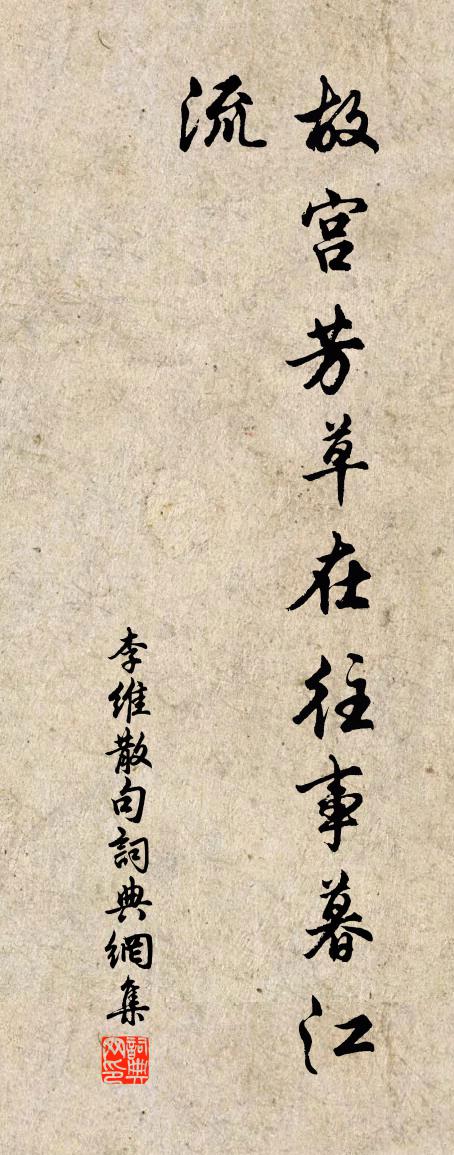 故宫芳草在往事暮江
流
李維散句詞典網集
詞典
网印